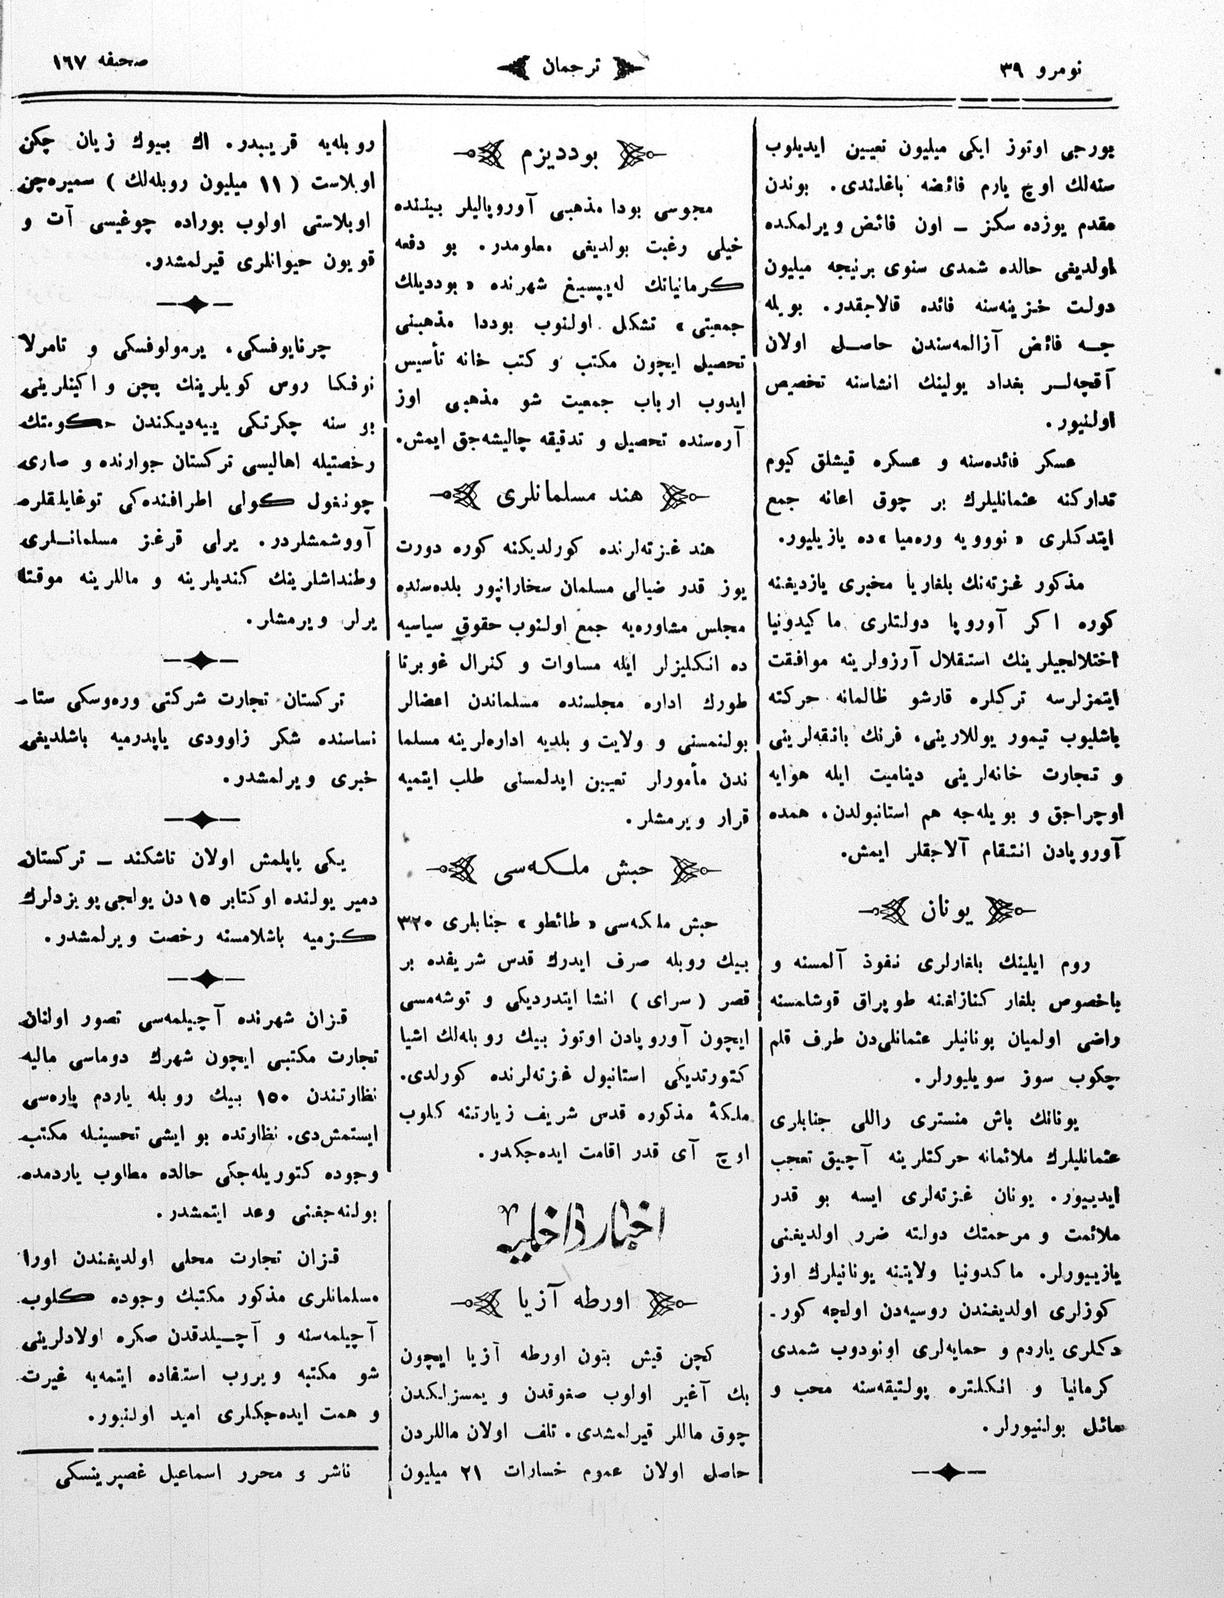 نومرو ٣٩
ترجمان
صحیفه ١٦٧
بورجی اوتوز ایکی میلیون تعیین ایدیلوب
سنه‌لك اوچ یارم فائضه باغلندی. بوندن
مقدم یوزده سکز ــ اون فائض ویرلمکده
اولدیغی حالده شمدی سنوی برنیجه میلیون
دولت خزینه‌سنه فائده قالاجقدر. بویله
جه فائض آزالمه‌سندن حاصل اولان
آقچه‌لر بغداد یولینك انشاسنه تخصیص
اولنیور.
عسکر فائده‌سنه و عسکره قیشلق کیوم
تدارکنه عثمانلیلرك بر چوق اعانه جمع
ایتدکلری «نوویه وره‌میا»ده یازیلیور.
مذکور غزته‌نك بلغاریا مخبری یازدیغنه
کوره اکر آوروپا دولتلری ماکیدونیا
اختلالجیلرینك استقلال آرزولرینه موافقت
ایتمزلرسه ترکلره قارشو ظالمانه حرکته
باشلیوب تیمور یوللارینی، فرنك بانقه‌لرینی
و تجارت خانه‌لرینی دینامیت ایله هوایه
اوچراجق و بویله‌جه هم استانبولدن، همده
آوروپادن انتقام آلاجقلر ایمش.
یونان
روم ایلینك بلغارلری نفوذ آلمسنه و
باخصوص بلغار کنازلغنه طوپراق قوشلمسنه
راضی اولمیان یونانیلر عثمانلی‌دن طرف قلم
چکوب سوز سویلیورلر.
یونانك باش منستری راللی جنابلری
عثمانلیلرك ملائمانه حرکتلرینه آچیق تعجب
ایدییور. یونان غزته‌لری ایسه بو قدر
ملائمت و مرحمتك دولته ضرر اولدیغنی
یازییورلر. ماکدونیا ولایتنه یونانیلرك اوز
کوزلری اولدیغندن روسیه‌دن اولجه کور-
دکلری یاردم و حمایه‌لری اونودوب شمدی
کرمانیا و انکلتره پولتیقه‌سنه محب و
مائل بولنیورلر.
بوددیزم
مجوسی بودا مذهبی آوروپالیلر بیننده
خیلی رغبت بولدیغی معلومدر. بو دفعه
کرمانیانك له‌یپسیغ شهرنده «بوددیلك
جمعیتی» تشکل اولنوب بوددا مذهبنی
تحصیل ایچون مکتب و کتب خانه تأسیس
ایدوب ارباب جمعیت شو مذهبی اوز
آره‌سنده تحصیل و تدقیقه چالیشه‌جق ایمش.
هند مسلمانلری
هند غزته‌لرنده کورلدیکنه کوره دورت
یوز قدر ضیالی مسلمان سخارانپور بلده‌سنده
مجلس مشاوره‌یه جمع اولنوب حقوق سیاسیه
ده انکلیزلر ایله مساوات و کنرال غوبرنا
طورك اداره مجلسنده مسلماندن اعضالر
بولنمسنی و ولایت و بلدیه اداره‌لرینه مسلما
ندن مأمورلر تعیین ایدلمسنی طلب ایتمیه
قرار ویرمشلر.
حبش ملکه‌سی
حبش ملکه‌سی «طائطو» جنابلری ٣٢٠
بیك روبله صرف ایدرك قدس شریفده بر
قصر (سرای) انشا ایتدردیکی و توشه‌مسی
ایچون آوروپادن اوتوز بیك روبله‌لك اشیا
کتورتدیکی استانبول غزته‌لرنده کورلدی.
ملکۀ مذکوره قدس شریف زیارتنه کلوب
اوچ آی قدر اقامت ایده‌جکدر.
اخبار داخلیه
اورطه آزیا
کچن قیش بتون اورطه آزیا ایچون
بك آغیر اولوب صغوقدن و یمسزلکدن
چوق ماللر قیرلمشدی. تلف اولان ماللردن
حاصل اولان عموم خسارات ٢١ میلیون
روبله‌یه قریبدر. اك بیوك زیان چکن
اوبلاست (١١ میلیون روبله‌لك) سمیره‌چن
اوبلاستی اولوب بوراده چوغیسی آت و
قویون حیوانلری قیرلمشدر.
چرنایوفسکی، یرمولوفسکی و تامرلا
نوفکا روس کویلرینك پچن و اکینلرینی
بو سنه چکرتکی ییه‌دیکندن حکومتك
رخصتیله اهالیسی ترکستان جوارنده و صاری
چونغول کولی اطرافنده‌کی توغایلقلره
آووشمشلردر. یرلی قرغز مسلمانلری
وطنداشلرینك کندیلرینه و ماللرینه موقتا
یرلر ویرمشلر.
ترکستان تجارت شرکتی وره‌وسکی ستا-
نساسنده شکر زاوودی یاپدرمیه باشلدیغی
خبری ویرلمشدر.
یکی یاپلمش اولان تاشکند ــ ترکستان
دمیر یولنده اوکتابر ١٥دن یولجی پویزدلرك
کزمیه باشلامسنه رخصت ویرلمشدر.
قزان شهرنده آچیلمه‌سی تصور اولنان
تجارت مکتبی ایچون شهرك دوماسی مالیه
نظارتندن ١٥٠ بیك روبله یاردم پاره‌سی
ایستمش‌دی. نظارتده بو ایشی تحسینله مکتب
وجوده کتوریله‌جکی حالده مطلوب یاردمده
بولنه‌جغنی وعد ایتمشدر.
قزان تجارت محلی اولدیغندن اورا
مسلمانلری مذکور مکتبك وجوده کلوب
آچیلمه‌سنه و آچیلدقدن صکره اولادلرینی
شو مکتبه ویروب استفاده ایتمه‌یه غیرت
و همت ایده‌جکلری امید اولنیور.
ناشر و محرر اسماعیل غصپرینسکی